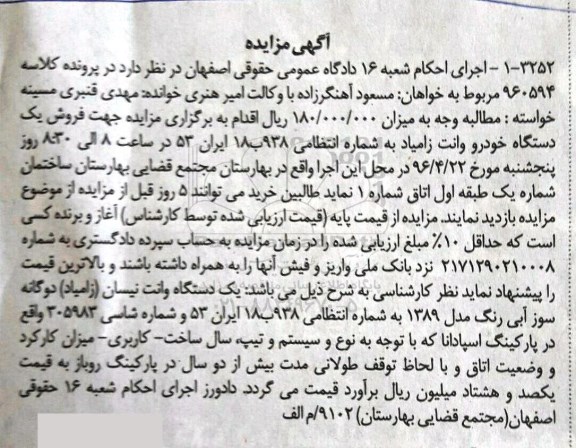 آگهی مزایده
۱-۳۲۵۲ - اجرای احکام شعبه ۱۶ دادگاه عمومی حقوقی اصفهان در نظر دارد در پرونده کلاسه
۹۶۰۵۹۴ مربوط به خواهان: مسعود آهنگرزاده با وکالت امیر هنری خوانده: مهدی قنبری مسینه
خواسته : مطالبه وجه به میزان ۱۸۰/۰۰۰/۰۰۰ ریال اقدام به برگزاری مزایده جهت فروش یک
دستگاه خودرو وانت زامیاد به شماره انتظامی ۹۳۸ب۱۸ ایران ۵۳ در ساعت ۸ الی ۸:۳۰ روز
پنجشنبه مورخ ۹۶/۴/۲۲ در محل این اجرا واقع در بهارستان مجتمع قضایی بهارستان ساختمان
شماره یک طبقه اول اتاق شماره ۱ نماید طالبین خرید می توانند ۵ روز قبل از مزایده از موضوع
مزایده بازدید نمایند. مزایده از قیمت پایه (قیمت ارزیابی شده توسط کارشناس) آغاز و برنده کسی
است که حداقل ۱۰٪ مبلغ ارزیابی شده را در زمان مزایده به حساب سپرده دادگستری به شماره
۲۱۷۱۲۹۰۲۱۰۰۰۸ نزد بانک ملی واریز و فیش آنها را به همراه داشته باشند و بالاترین قیمت
را پیشنهاد نماید نظر کارشناسی به شرح ذیل می باشد: یک دستگاه وانت نیسان (زامیاد) دوگانه
سوز آبی رنگ مدل ۱۳۸۹ به شماره انتظامی ۹۳۸ب۱۸ ایران ۵۳ و شماره شاسی ۳۰۵۹۸۳ واقع
در پارکینگ اسپادانا که با توجه به نوع و سیستم و تیپ، سال ساخت- کاربری- میزان کارکرد
و وضعیت اتاق و با لحاظ توقف طولانی مدت بیش از دو سال در پارکینگ روباز به قیمت
یکصد و هشتاد میلیون ریال برآورد قیمت می گردد. دادورز اجرای احکام شعبه ۱۶ حقوقی
اصفهان(مجتمع قضایی بهارستان) ۹۱۰۲/م الف